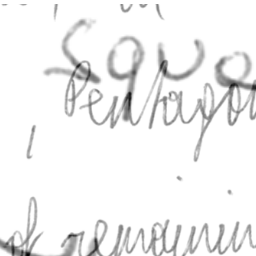 Squa
Pentagon
of remainin